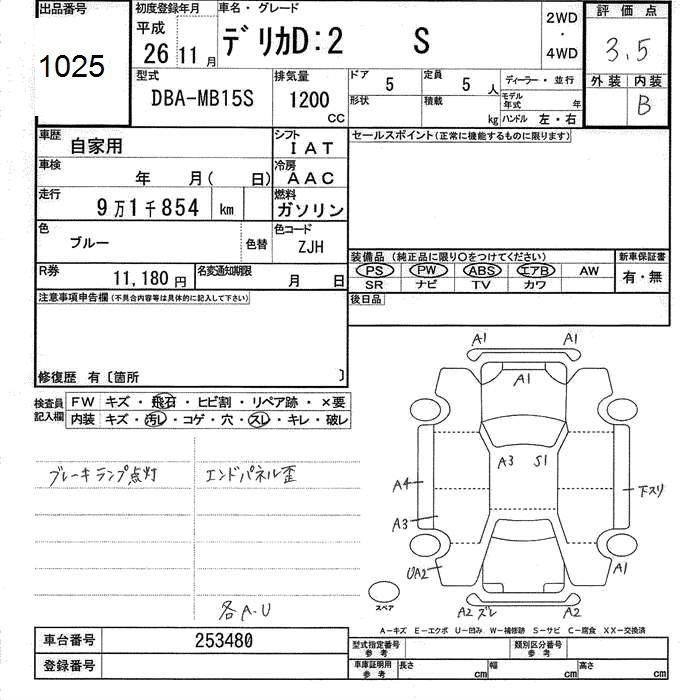 出品番号 初度登録年月 車名・グレード 評価点
1025 平成 26 11月 デリカD:2 S 2WD・4WD 3.5
型式 排気量 ドア 定員 ディーラー・並行 外装 内装
DBA-MB15S 1200 CC 5 5人 モデル年式 年 B
形状 積載 kg ハンドル 左・右
車歴 自家用 シフト IAT セールスポイント(正常に機能するものに限ります)
車検 年 月( 日) 冷房 AAC
走行 9万1千854 km 燃料 ガソリン
色 ブルー 色替 色コード ZJH
装備品 (純正品に限り○をつけてください) 新車保証書
PS PW ABS エアB AW 有・無
SR ナビ TV カワ
R券 11,180円 名変通知期限 月 日
後日品
注意事項申告欄(不具合内容等は具体的に記入して下さい)
修復歴 有〔箇所 〕
検査員記入欄 FW キズ・飛石・ヒビ割・リペア跡・×要
内装 キズ・汚レ・コゲ・穴・スレ・キレ・破レ
ブレーキランプ点灯 エンドパネル歪
各A・U
A1 A1
A1
A3 S1
A4 下スリ
A3
UA2 A1
スペア A2 ズレ A2
A-キズ E-エクボ U-凹み W-補修跡 S-サビ C-腐食 XX-交換済
車台番号 253480 型式指定番号 参考 類別区分番号 参考
登録番号 車庫証明用 参考 長さ cm 幅 cm 高さ cm